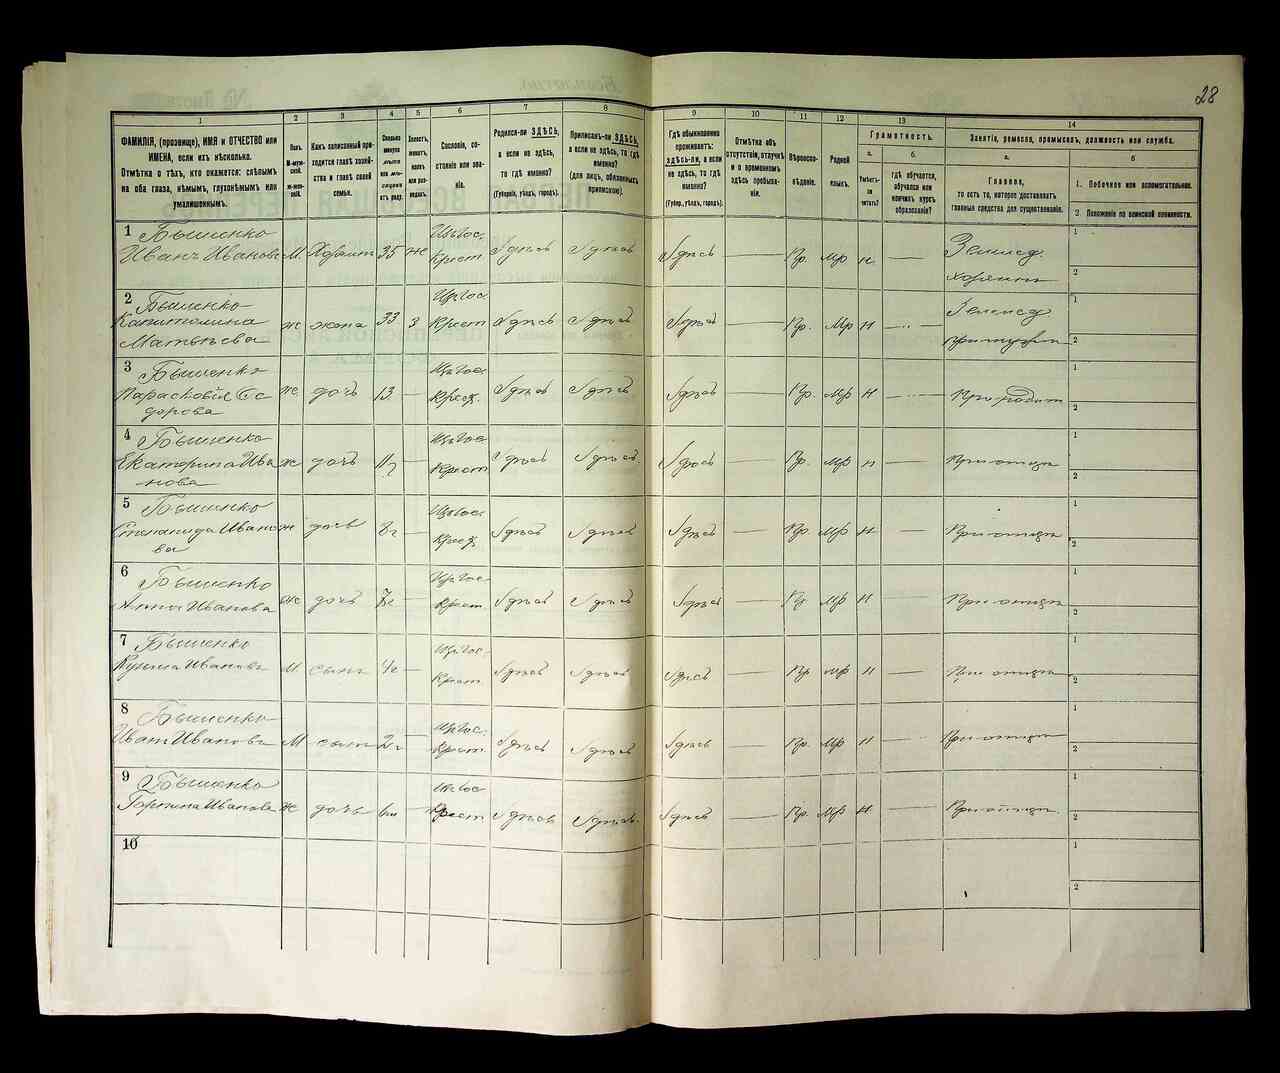 28
1
2
3
4
5
6
7
8
9
10
11
12
13
14
ФАМИЛІЯ, (прозвище), ИМЯ и ОТЧЕСТВО или
ИМЕНА, если ихъ нѣсколько.
Отмѣтка о тѣхъ, кто окажется: слѣпымъ
на оба глаза, нѣмымъ, глухонѣмымъ или
умалишеннымъ.
Полъ.
М-муж-
ской.
ж-жен-
скій.
Какъ записанный при-
ходится главѣ хозяй-
ства и главѣ своей
семьи.
Сколько
минуло
лѣтъ
или мѣ-
сяцевъ
отъ роду.
Холостъ,
женатъ,
вдовъ
или раз-
веденъ.
Сословіе, со-
стояніе или зва-
ніе.
Родился-ли ЗДѢСЬ,
а если не здѣсь,
то гдѣ именно?
(Губернія, уѣздъ, городъ).
Приписанъ-ли ЗДѢСЬ,
а если не здѣсь, то гдѣ
именно?
(для лицъ, обязанныхъ
припискою).
Гдѣ обыкновенно
проживаетъ:
здѣсь-ли, а если
не здѣсь, то гдѣ
именно?
(Губер., уѣздъ, городъ).
Отмѣтка объ
отсутствіи, отлучкѣ
и о временномъ
здѣсь пребыва-
ніи.
Вѣроиспо-
вѣданіе.
Родной
языкъ.
Грамотность.
а.
б.
Умѣетъ-
ли
читать?
гдѣ обучается,
обучался или
кончилъ курсъ
образованія?
Занятіе, ремесло, промыселъ, должность или служба.
а.
б
Главное,
то есть то, которое доставляетъ
главныя средства для существованія.
1. Побочное или вспомогательное.
2. Положеніе по воинской повинности.
1 Бышенко
Иванъ Ивановъ М. Хозяинъ 35 ж Крест Здѣсь Здѣсь Здѣсь — Пр. Мр н — Землед.
хозяинъ
1
2
2 Бышенко
Капитолина
Матвѣева ж жена 33 З Крест Здѣсь Здѣсь Здѣсь — Пр. Мр н — Землед
1
2
3 Бышенко
ж дочь 13 — Крест. Здѣсь Здѣсь Здѣсь — Пр. Мр н —
1
2
4 Бышенко
Екатерина Ива
нова ж дочь — Крест Здѣсь Здѣсь Здѣсь — Пр. Мр н — При отцѣ
1
2
5 Бышенко
Степанида Ивано
ва ж дочь — Крест. Здѣсь Здѣсь Здѣсь — Пр. Мр н — При отцѣ
1
2
6 Бышенко
Анна Иванова ж дочь — Крест Здѣсь Здѣсь Здѣсь — Пр Мр н — При отцѣ
1
2
7 Бышенко
Ивановъ М сынъ — Крест. Здѣсь Здѣсь Здѣсь — Пр Мр н — При отцѣ
1
2
8 Бышенко
Иванъ Ивановъ М сынъ — Крест. Здѣсь Здѣсь Здѣсь — Пр. Мр н — При отцѣ
1
2
9 Бышенко
Горпина Иванова ж дочь Крест Здѣсь Здѣсь Здѣсь — Пр. Мр н — При отцѣ
1
2
10
1
2